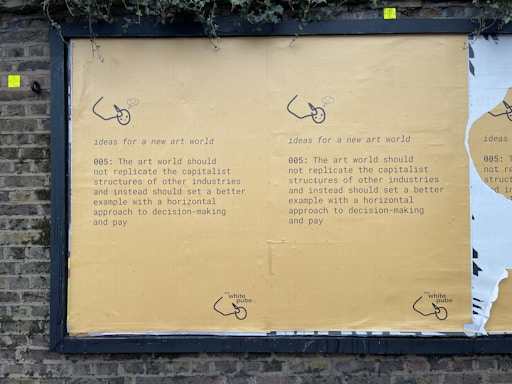 ideas for a new art world
005: The art world should
not replicate the capitalist
structures of other industries
and instead should set a better
example with a horizontal
approach to decision-making
and pay
the
white
pube
ideas for a new art world
005: The art world should
not replicate the capitalist
structures of other industries
and instead should set a better
example with a horizontal
approach to decision-making
and pay
the
white
pube
ideas
005:
not r
struct
and in